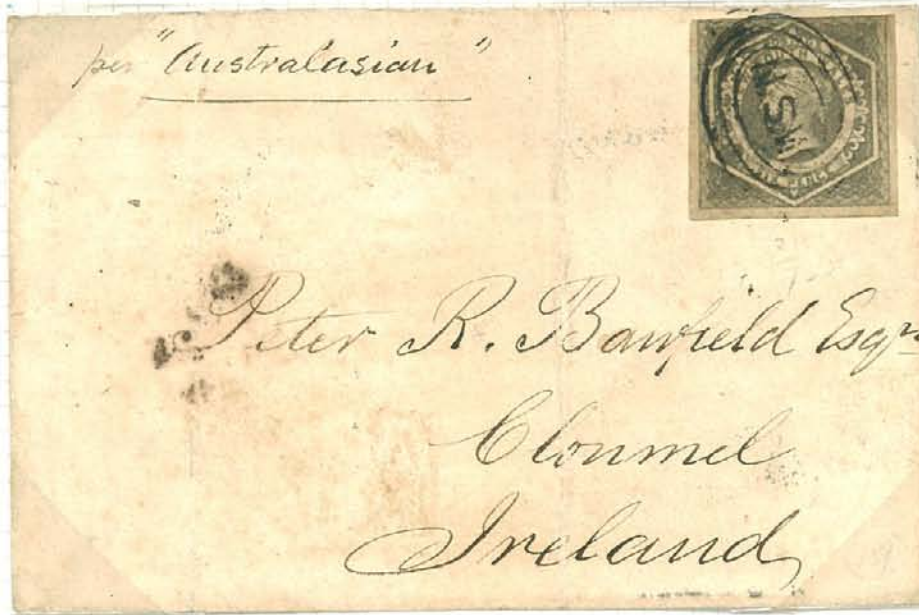 per "Australasian"
NSW
Peter R. Banfield Esqr.
Clonmel
Ireland